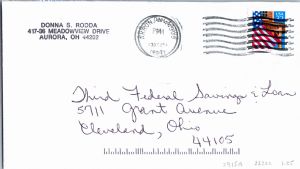 DONNA S. RODDA
417-36 MEADOWVIEW DRIVE
AURORA, OH 44202
PM
Third Federal Savings & Loan
5711 Grant Avenue
Cleveland, Ohio
44105